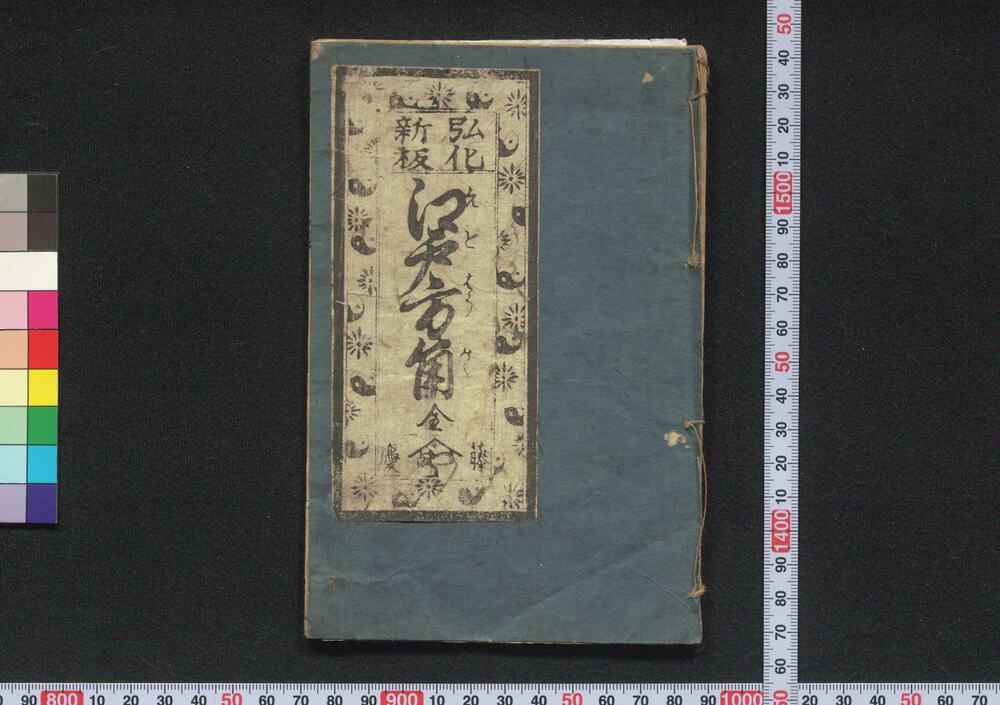 弘化
新板
江戸方角
えどはうがく
全
藤
慶
50
40
30
20
10
1500
90
80
70
60
50
40
30
20
10
1400
90
80
70
60
50
90 800 10 20 30 40 50 60 70 80 90 900 10 20 30 40 50 60 70 80 90 1000 20 30 40 50 60 70